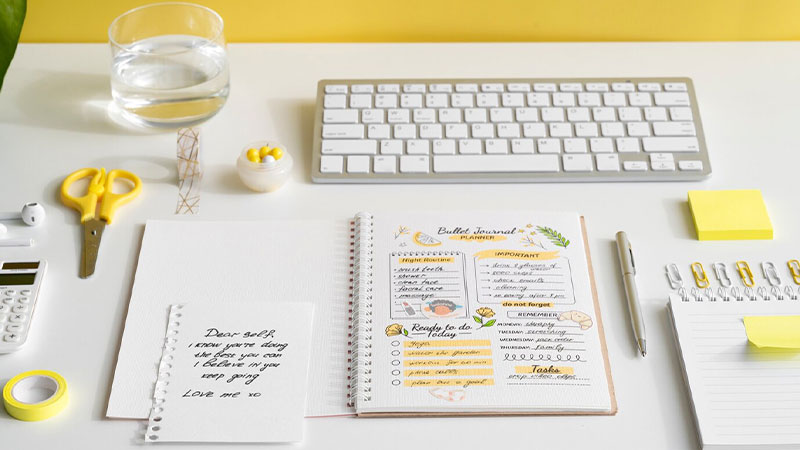 Dear self
I know you're
doing
the best you can
I believe in you
keep going
Love me xo
Bullet Journal
PLANNER
Night Routine
brush teeth
shower
clean face
facial care
massage
IMPORTANT
drink 2 glasses of
check emails
planning
do not forget
REMEMBER
MONDAY:
TUESDAY:
WEDNESDAY:
THURSDAY: family
Ready to do
Today
yoga
water the garden
plan over a week
Tasks